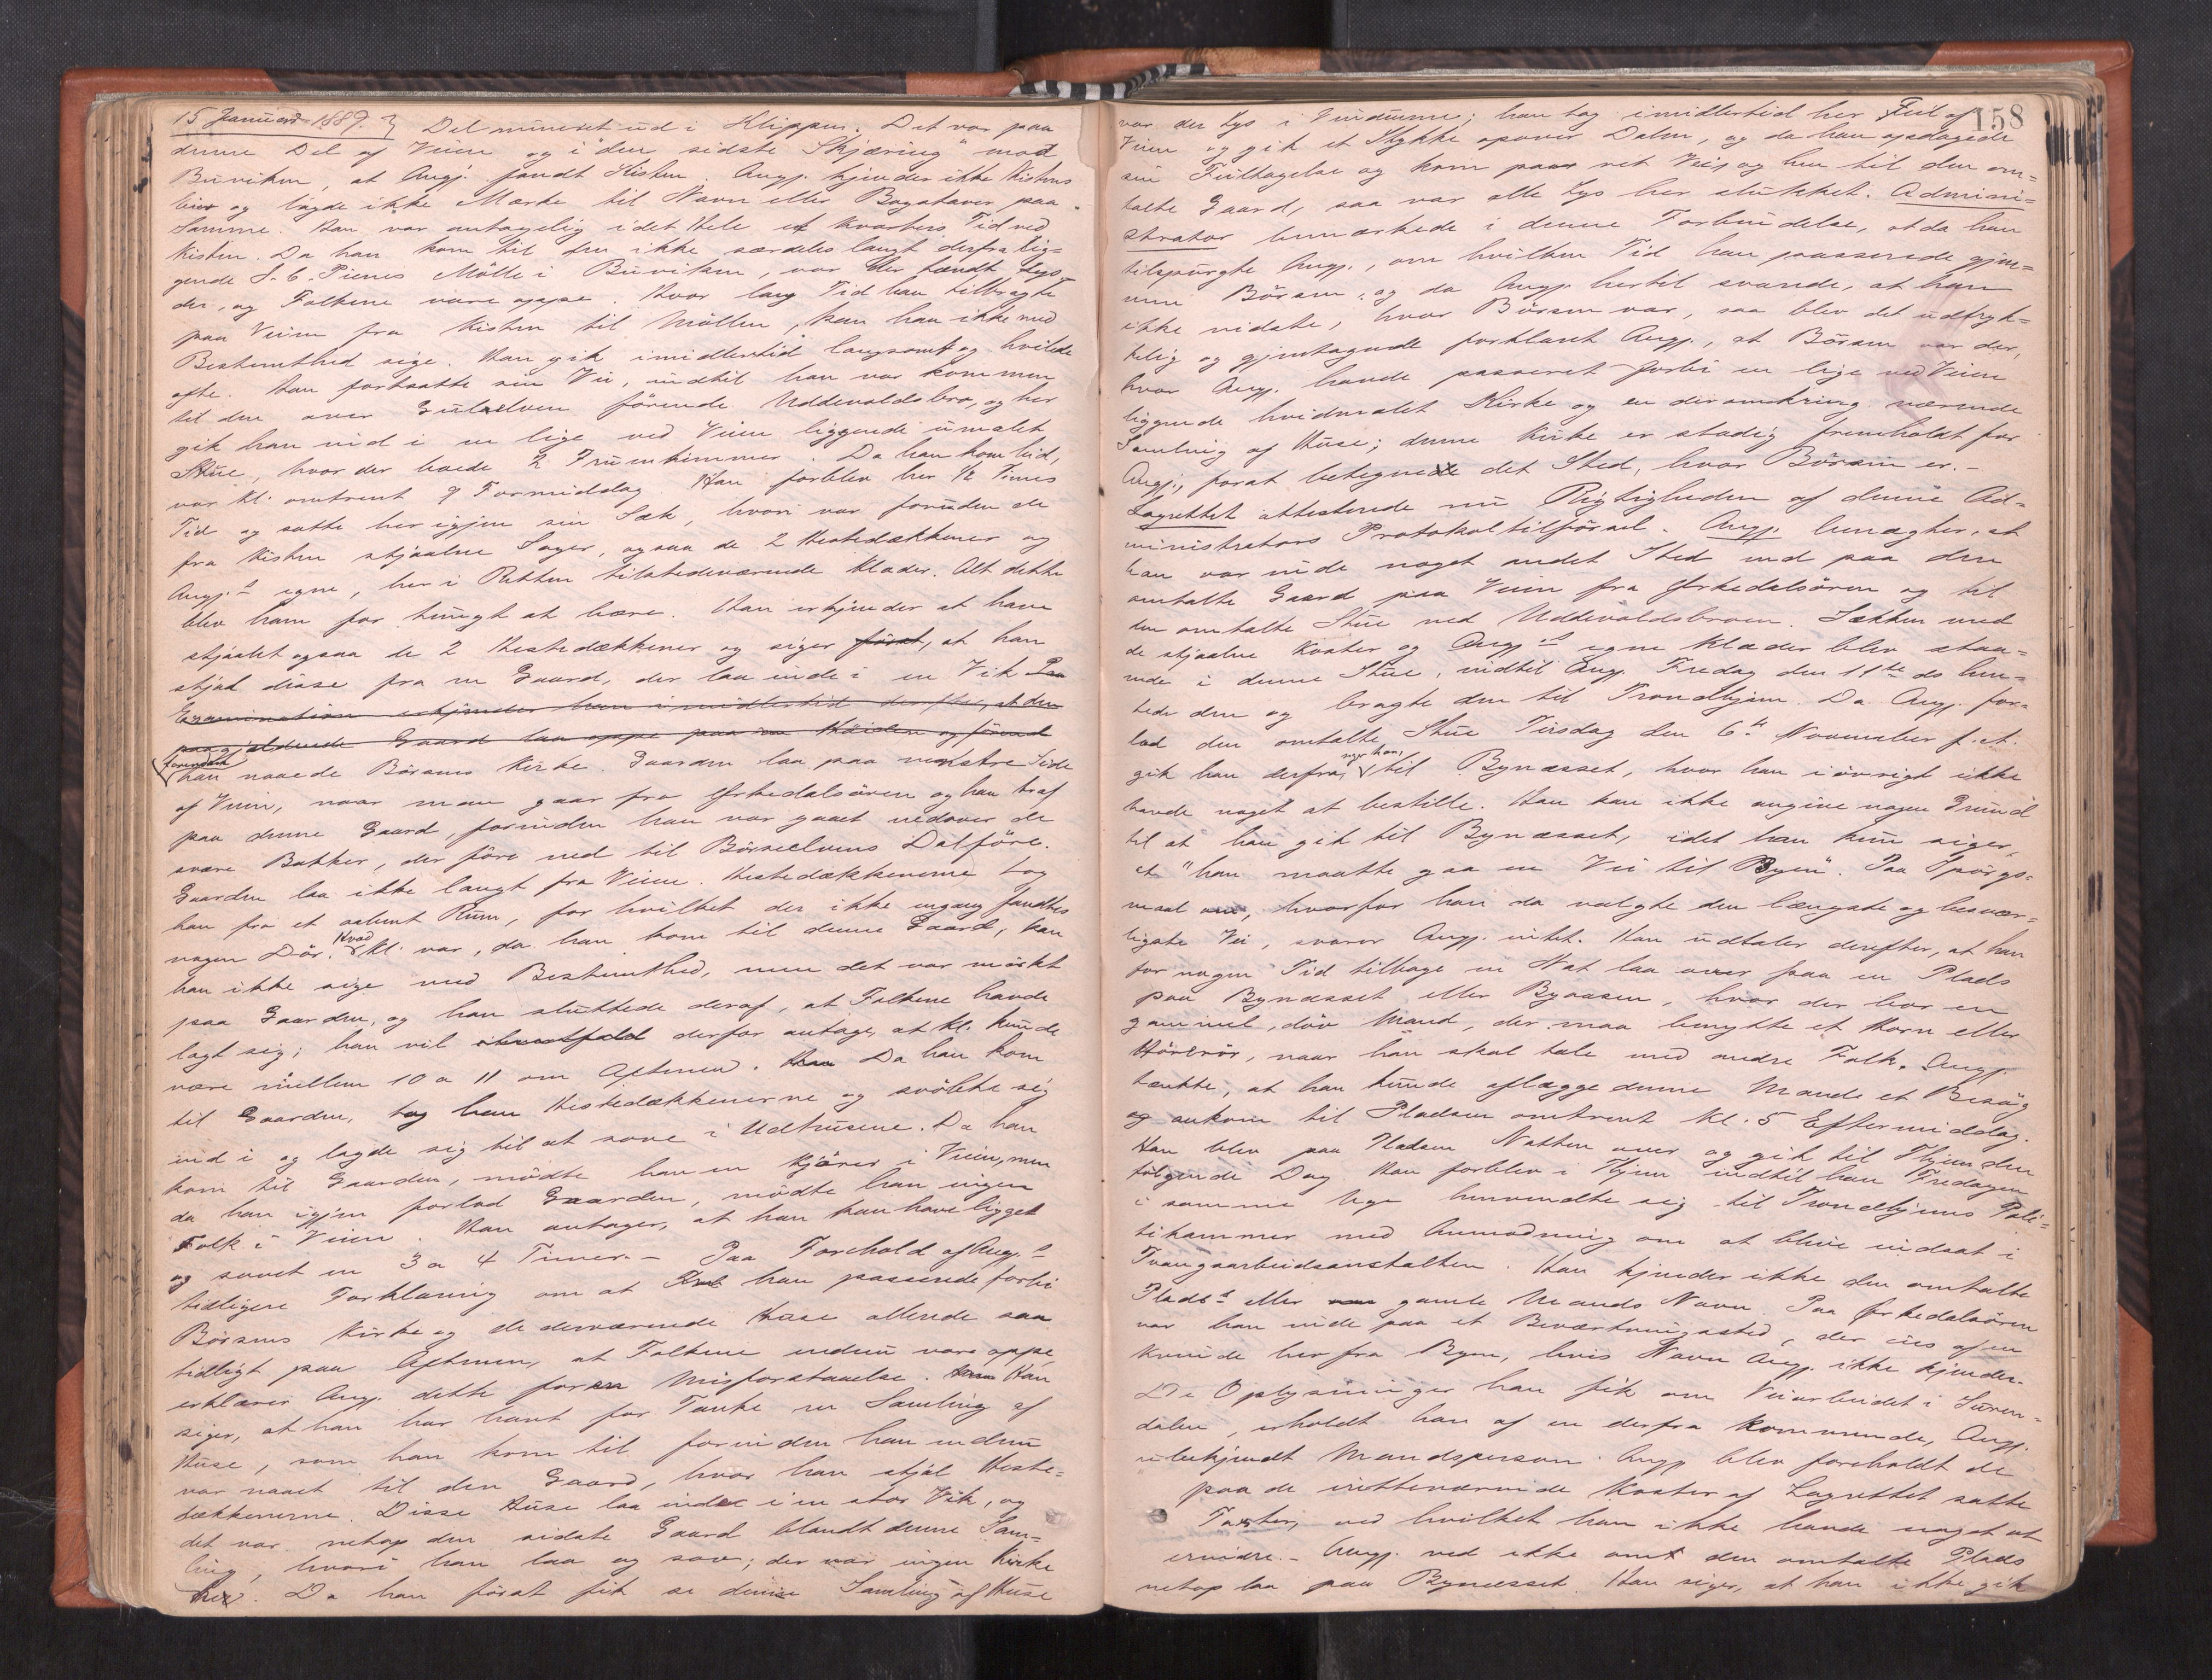 15 Januar 1889. } Del mineret ud i Klippen. Det var paa
denne Del af Veien og i "den sidste Skjæring" mod
Buviken, at Angj. fandt Kisten. Angj. kjender ikke Kistens
Eier og lagde ikke Mærke til Navn eller Bogstaver paa
Samme. Han var antagelig i det Hele et Kvarters Tid ved
Kisten. Da han kom til den ikke særdeles langt derfra lig=
gende S. C. Pienes Mölle i Buviken, var der tændt Lys
der, og Folkene vare oppe. Hvor lang Tid han tilbragte
paa Veien fra Kisten til Möllen, kan han ikke med
Bestemthed sige. Han gik imidlertid langsomt og hvilede
ofte. Han fortsatte sin Vei, indtil han var kommen
til den over Gulelven förende Uddevoldsbro, og her
gik han ind i en lige ved Veien liggende umalet
Stue, hvor der boede 2 Fruentimmer. Da han kom hid,
var Kl. omtrent 9 Formiddag. Han forblev her ½ Times
Tid og satte her igjen sin Sæk, hvori var foruden de
fra Kisten stjaalne Sager, ogsaa de 2 Hestedækkener og
Angj.s egne, her i Retten tilstedeværende Klæder. Alt dette
blev ham for tungt at bære. Han erkjender at have
stjaalet ogsaa de 2 Hestedækkener og siger först, at han
stjal disse fra en Gaard, der laa inde i en Vik Paa
Examination erkjender han imidlertid derefter, at den
paagjældende Gaard laa oppe paa Höiden og förend
forinden
han naaede Börsens Kirke. Gaarden laa paa venstre Side
af Veien, naar man gaar fra Örkedalsören og han traf
paa denne Gaard, forinden han var gaaet nedover de
svære Bakker, der före ned til Börseelvens Dalföre.
Gaarden laa ikke langt fra Veien. Hestedækkenerne tog
han fra et aabent Rum, for hvilket der ikke engang fandtes
nogen Dör. Hvad Kl. var, da han kom til denne Gaard, kan
han ikke sige med Bestemthed, men det var mörkt
paa Gaarden, og han sluttede deraf, at Folkene havde
lagt sig; han vil derfor antage, at Kl. kunde
være mellem 10 a 11 om Aftenen. Han Da han kom
til Gaarden, tog han Hestedækkenerne og svöbte sig
ind i og lagde sig til at sove i Udhusene. Da han
kom til Gaarden, mödte han en Kjörer i Veien, men
da han igjen forlod Gaarden, mödte han ingen
Folk i Veien. Han antager, at han kan have ligget
og sovet en 3 a 4 Timer. – Paa Forehold af Angj.s
tidligere Forklaring om at han passerede forbi
Börsens Kirke og de derværende Huse allerede saa
tidligt paa Aftenen, at Folkene endnu vare oppe,
erklærer Angj. dette for en Misforstaaelse. Han
siger, at han har havt for Tanke en Samling af
Huse, som han kom til forinden han endnu
var naaet til den Gaard, hvor han stjal Heste=
dækkenerne. Disse Huse laa inde i en stor Vik, og
det var netop den sidste Gaard blandt denne Sam=
ling, hvori han laa og sov; der var ingen Kirke
her. Da han först fik se denne Samling af Huse
158
var der Lys i Vinduerne; han tog imidlertid her Feil af
Veien og gik et Stykke opover Dalen, og da han opdagede
sin Feiltagelse og kom paa ret Vei, og hen til den om=
talte Gaard, saa var alle Lys her slukket. Admini=
strator bemærkede i denne Forbindelse, at da han
tilspurgte Angj., om hvilken Tid han passerede gjen=
nem Börsen, og da Angj. hertil svarede, at han
ikke vidste, hvor Börsen var, saa blev det udtryk=
kelig og gjentagende forklaret Angj., at Börsen var der,
hvor Angj. havde passeret forbi en lige ved Veien
liggende hvidmalet Kirke og en deromkring værende
Samling af Huse; denne Kirke er stadig fremholdt for
Angj., forat betegne det Sted, hvor Börsen er. –
Lagrettet attesterede nu Rigtigheden af denne Ad=
ministrators Protokoltilförsel. Angj. benægter, at
han var inde noget andet Sted end paa den
omtalte Gaard paa Veien fra Örkedalsören og til
den omtalte Stue ved Uddevoldsbroen. Sækken med
de stjaalne Koster og Angj.s egne Klæder blev staa=
ende i denne Stue, indtil Angj. Fredag den 11te ds hen=
tede den og bragte den til Trondhjem. Da Angj. for=
lod den omtalte Stue Tirsdag den 6te November f. A.
gik han derfra, siger han, til Bynæsset, hvor han iövrigt ikke
havde noget at bestille. Han kan ikke angive nogen Grund
til at han gik til Bynæsset, idet han kun siger,
at "han maatte gaa en Vei til Byen". Paa Spörgs=
maal om, hvorfor han da valgte den længste og besvær=
ligste Vei, svarer Angj. intet. Han udtaler derefter, at han
for nogen Tid tilbage en Nat laa over paa en Plads
paa Bynæsset eller Byaasen, hvor der bor en
gammel, döv Mand, der maa benytte et Horn eller
Hörerör, naar han skal tale med andre Folk. Angj.
tænkte, at han kunde aflægge denne Mand et Besög
og ankom til Pladsen omtrent Kl. 5 Eftermiddag.
Han blev paa Pladsen Natten over og gik til Thjem den
fölgende Dag. Han forblev i Thjem indtil han Fredagen
i samme Uge henvendte sig til Trondhjems Poli=
tikammer med Anmodning om at blive indsat i
Tvangsarbeidsanstalten. Han kjender ikke den omtalte
Plads's eller gamle Mands Navn. Paa Örkedalsören
var han inde paa et Beværtningssted, der eies af en
Kvinde her fra Byen, hvis Navn Angj. ikke kjender.
De Oplysninger han fik om Veiarbeidet i Suren=
dalen, erholdt han af en derfra kommende, Angj.
ubekjendt Mandsperson. Angj. blev foreholdt de
paa de iretteværende Koster af Lagrettet satte
Taxter, ved hvilket han ikke havde noget at
erindre. – Angj. ved ikke om den omtalte Plads
netop laa paa Bynæsset. Han siger, at han ikke gik